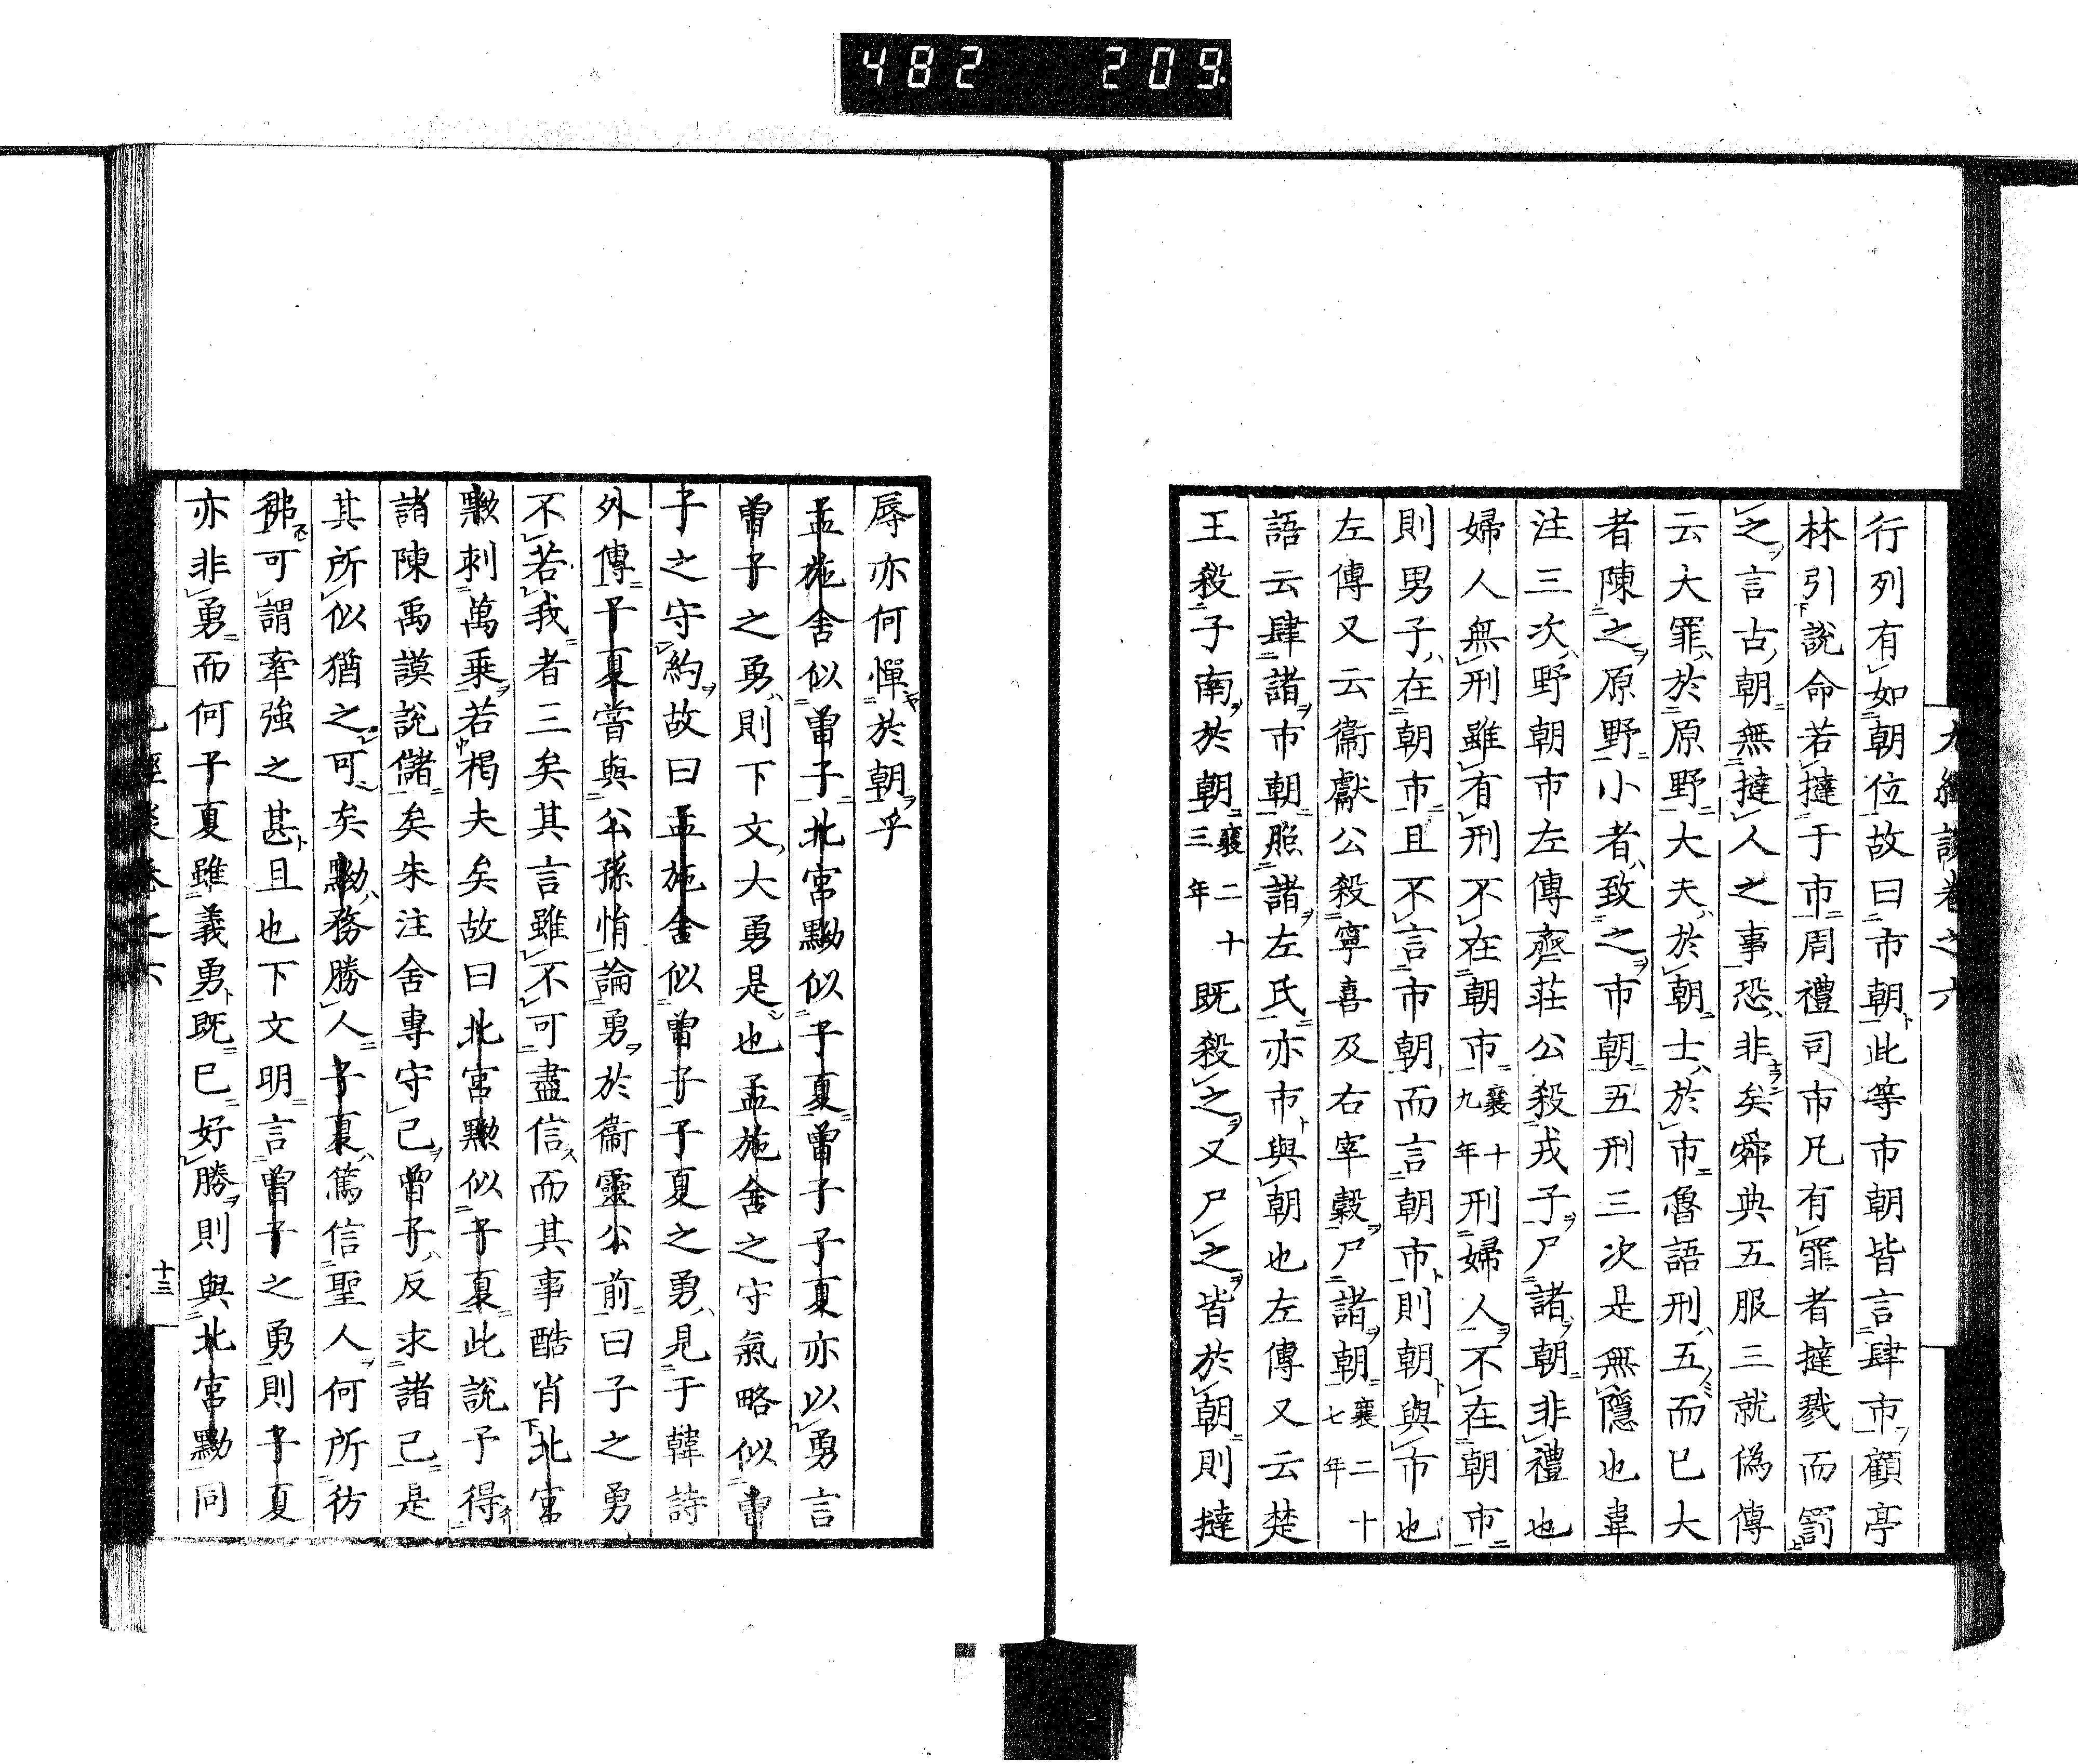 482 209
九經談卷之六
行列有如朝位故曰市朝此等市朝皆言肆市顧亭
林引說命若撻于市周禮司市凡有罪者撻戮而罰
之言古朝無撻人之事恐非矣舜典五服三就偽傳
云大罪於原野大夫於朝士於市魯語刑五而已大
者陳之原野小者致之市朝五刑三次是無隱也韋
注三次野朝市左傳齊莊公殺戎子尸諸朝非禮也
婦人無刑雖有刑不在朝市襄十九年刑婦人不在朝市
則男子在朝市且不言市朝而言朝市則朝與市也
左傳又云衞獻公殺寧喜及右宰穀尸諸朝襄二十七年
語云肆諸市朝照諸左氏亦市與朝也左傳又云楚
王殺子南於朝襄二十三年既殺之又尸之皆於朝則撻
辱亦何憚於朝乎
孟施舍似曽子北宮黝似子夏曽子子夏亦以勇言
曽子之勇則下文大勇是也孟施舍之守氣略似曽
子之守約故曰孟施舍似曽子子夏之勇見于韓詩
外傳子夏嘗與公孫悁論勇於衞靈公前曰子之勇
不若我者三矣其言雖不可盡信而其事酷肖北宮
黝刺萬乗若褐夫矣故曰北宮黝似子夏此說予得
諸陳禹謨說儲矣朱注舍專守己曽子反求諸己是
其所似猶之可矣黝務勝人子夏篤信聖人何所彷
彿可謂牽強之甚且也下文明言曽子之勇則子夏
亦非勇而何子夏雖義勇既已好勝則與北宮黝同
九經談卷之六
十三